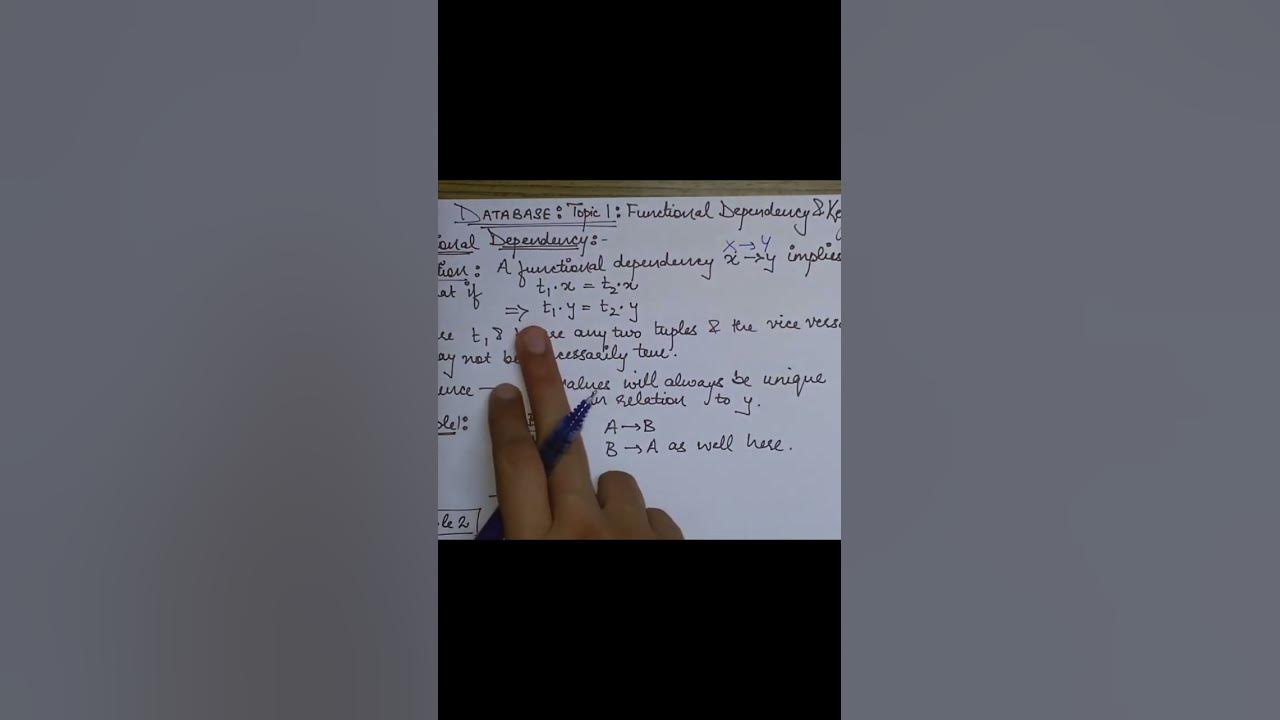 DATABASE: Topic 1: Functional Dependency & Key
ional Dependency:-
X → Y
tion: A functional dependency x → y implies
at if t₁.x = t₂.x
⇒ t₁.y = t₂.y
re t₁ & are any two tuples & the vice versa
ay not be necessarily true.
ence values will always be unique
in relation to y.
ple1: A → B
B → A as well here.
le 2